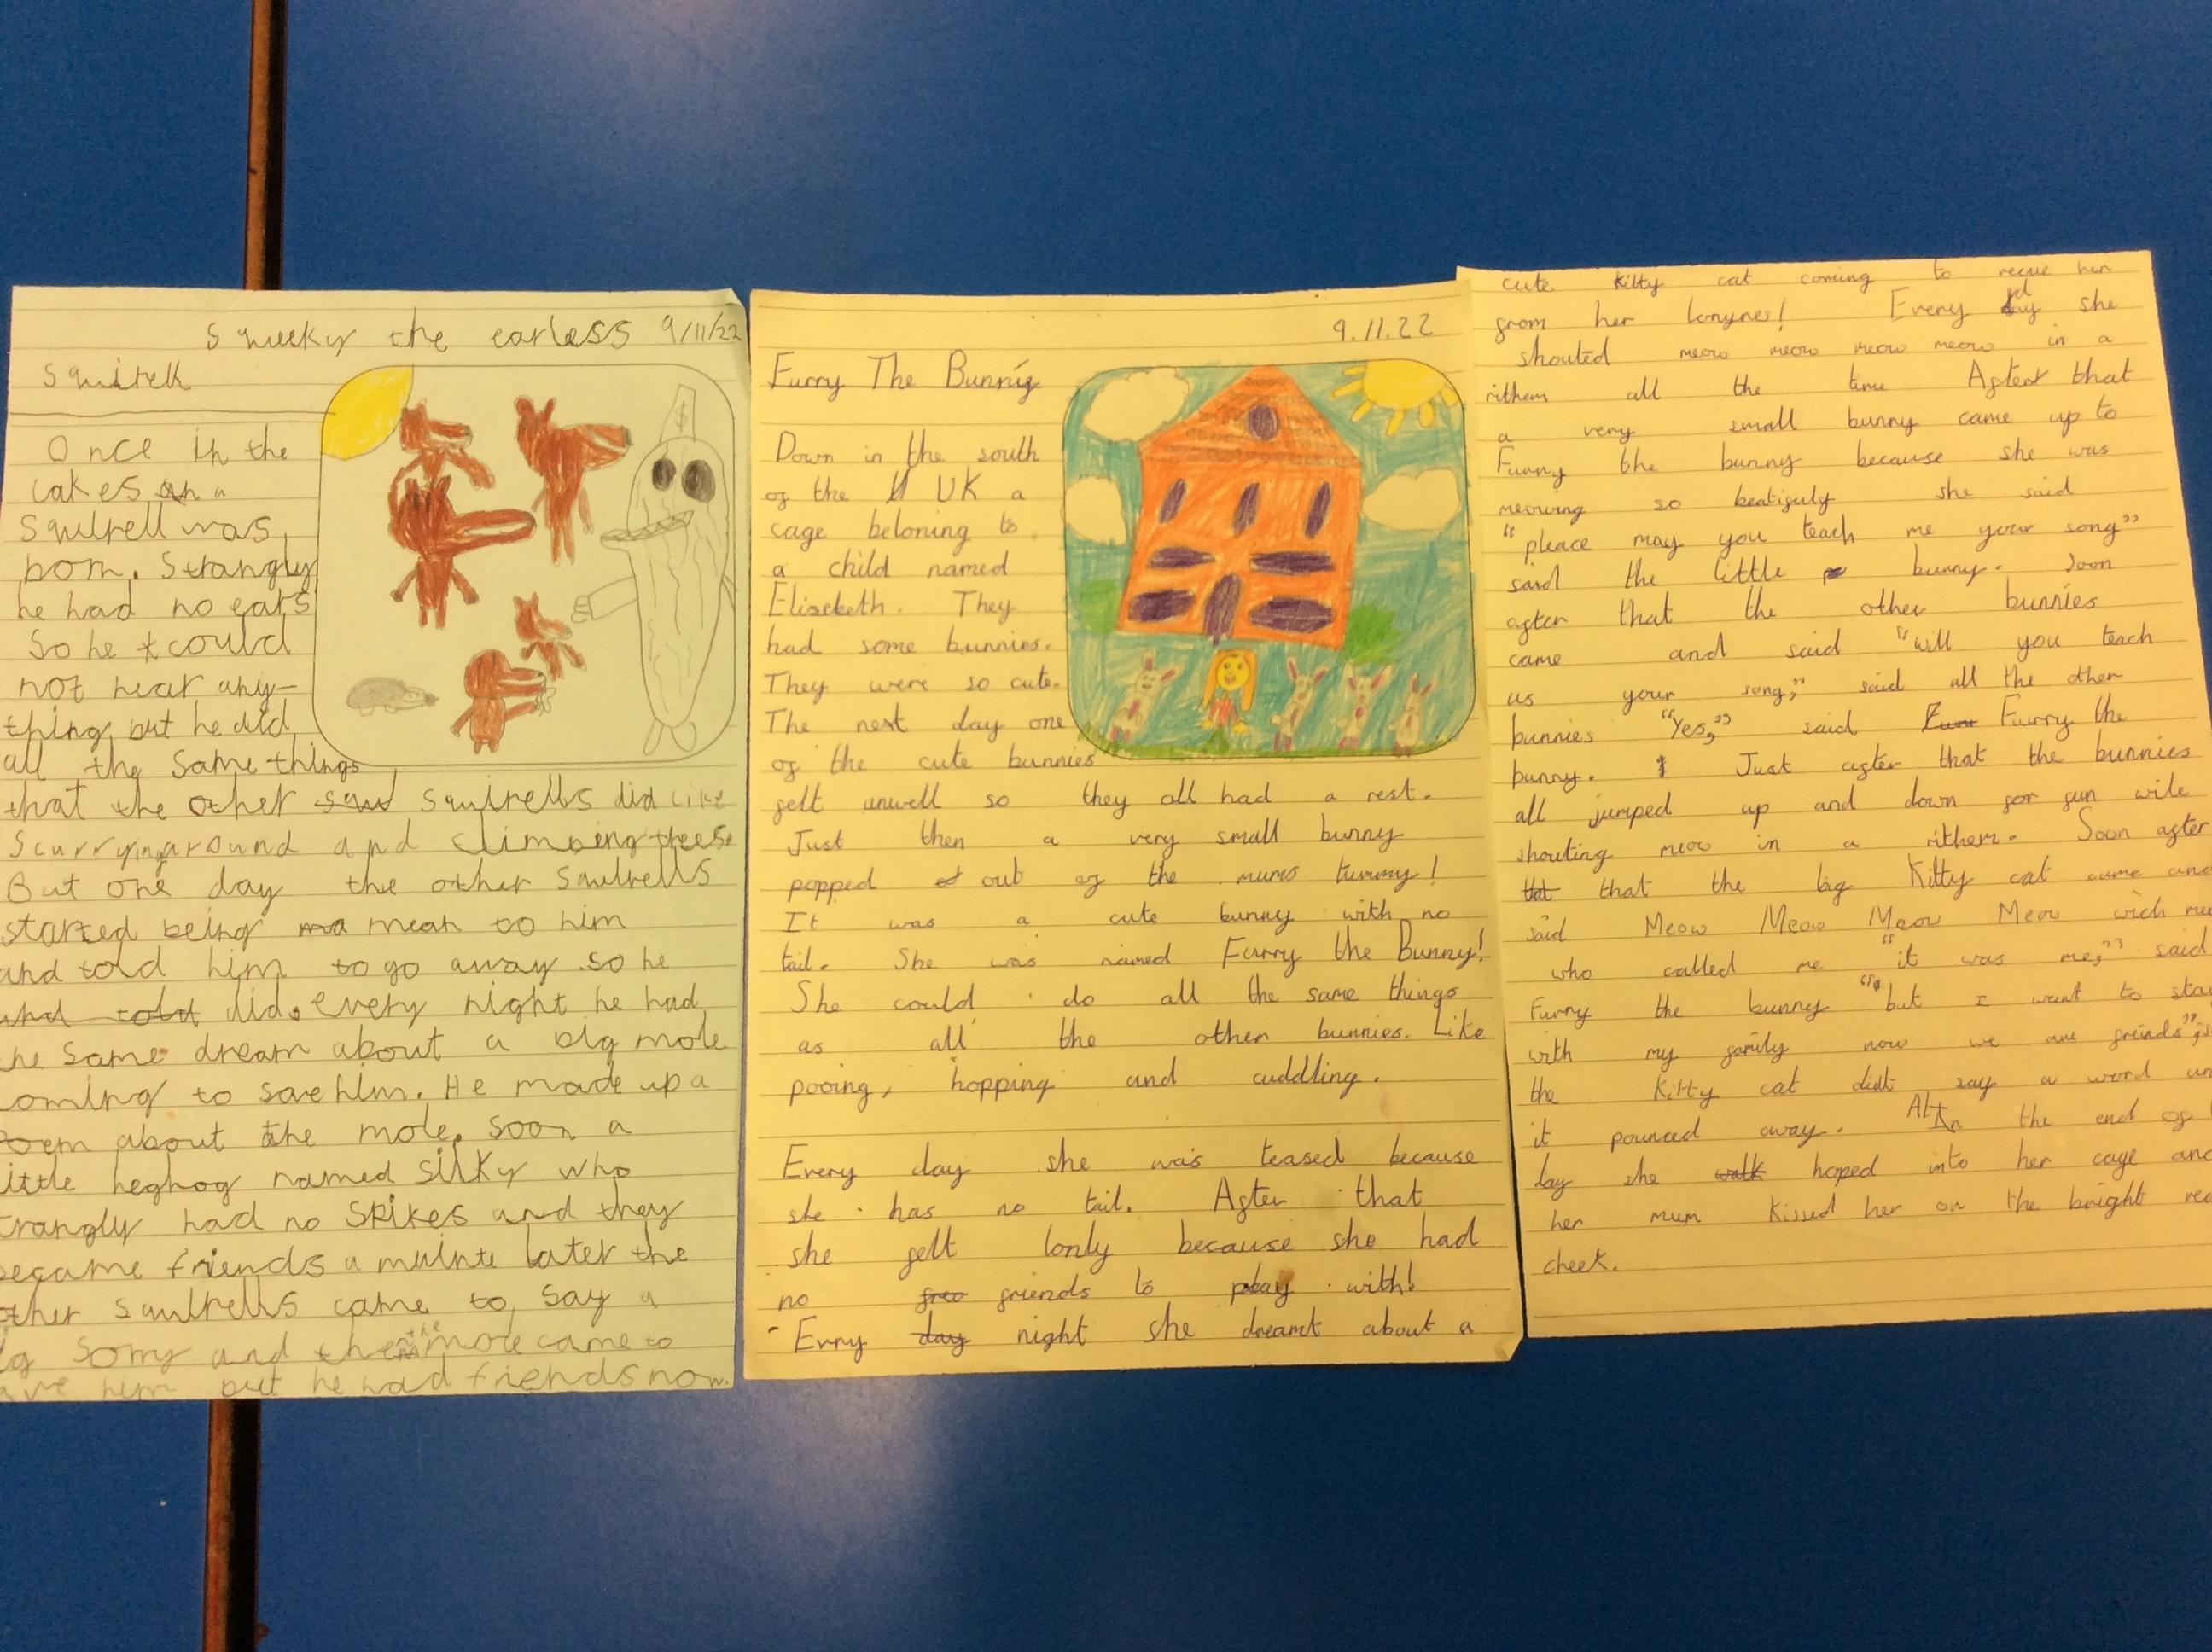 Squeeky the earless 9/11/22
Squirell
Once in the
Lakes a
Squirell was
born. Strangly
he had no ears
So he could
not hear any-
thing but he did
all the same things
that the other squirells did like
Scurrying around and climbing trees.
But one day the other squirells
started being mean to him
and told him to go away so he
and told did. every night he had
he same dream about a big mole
oming to save him. He made up a
Poem about the mole. soon a
ittle heghog named silky who
trangly had no spikes and they
ecame friends a muinte later the
other squirells came to say a
ig sorry and then the mole came to
ave him but he had friends now.
9.11.22
Furry The Bunny
Down in the south
of the UK a
cage beloning to
a child named
Elizebeth. They
had some bunnies.
They were so cute.
The next day one
of the cute bunnies
felt unwell so they all had a rest.
Just then a very small bunny
popped out of the mums tummy!
It was a cute bunny with no
tail. She was named Furry the Bunny!
She could do all the same things
as all the other bunnies. Like
pooing, hopping and cuddling.
Every day she was teased because
she has no tail. After that
she felt lonly because she had
no friends to play with!
Evry day night she dreamt about a
cute kitty cat coming to recue her
from her lonynes! Every she
shouted meow meow meow meow in a
rithem all the time After that
a very small bunny came up to
Furry the bunny because she was
meowing so beatifuly she said
"pleace may you teach me your song"
said the little bunny. Soon
after that the other bunnies
came and said "will you teach
us your song," said all the other
bunnies "Yes," said Furry the
bunny. Just after that the bunnies
all jumped up and down for fun wile
shouting meow in a rithem. Soon after
that that the big Kitty cat came and
said Meow Meow Meow Meow wich
who called me "it was me," said
Furry the bunny "but I want to sta
with my family now we are freinds"
the Kitty cat didt say a word un
it pounced away. At the end of
day she walk hoped into her cage and
her mum kissed her on the bright red
cheek.